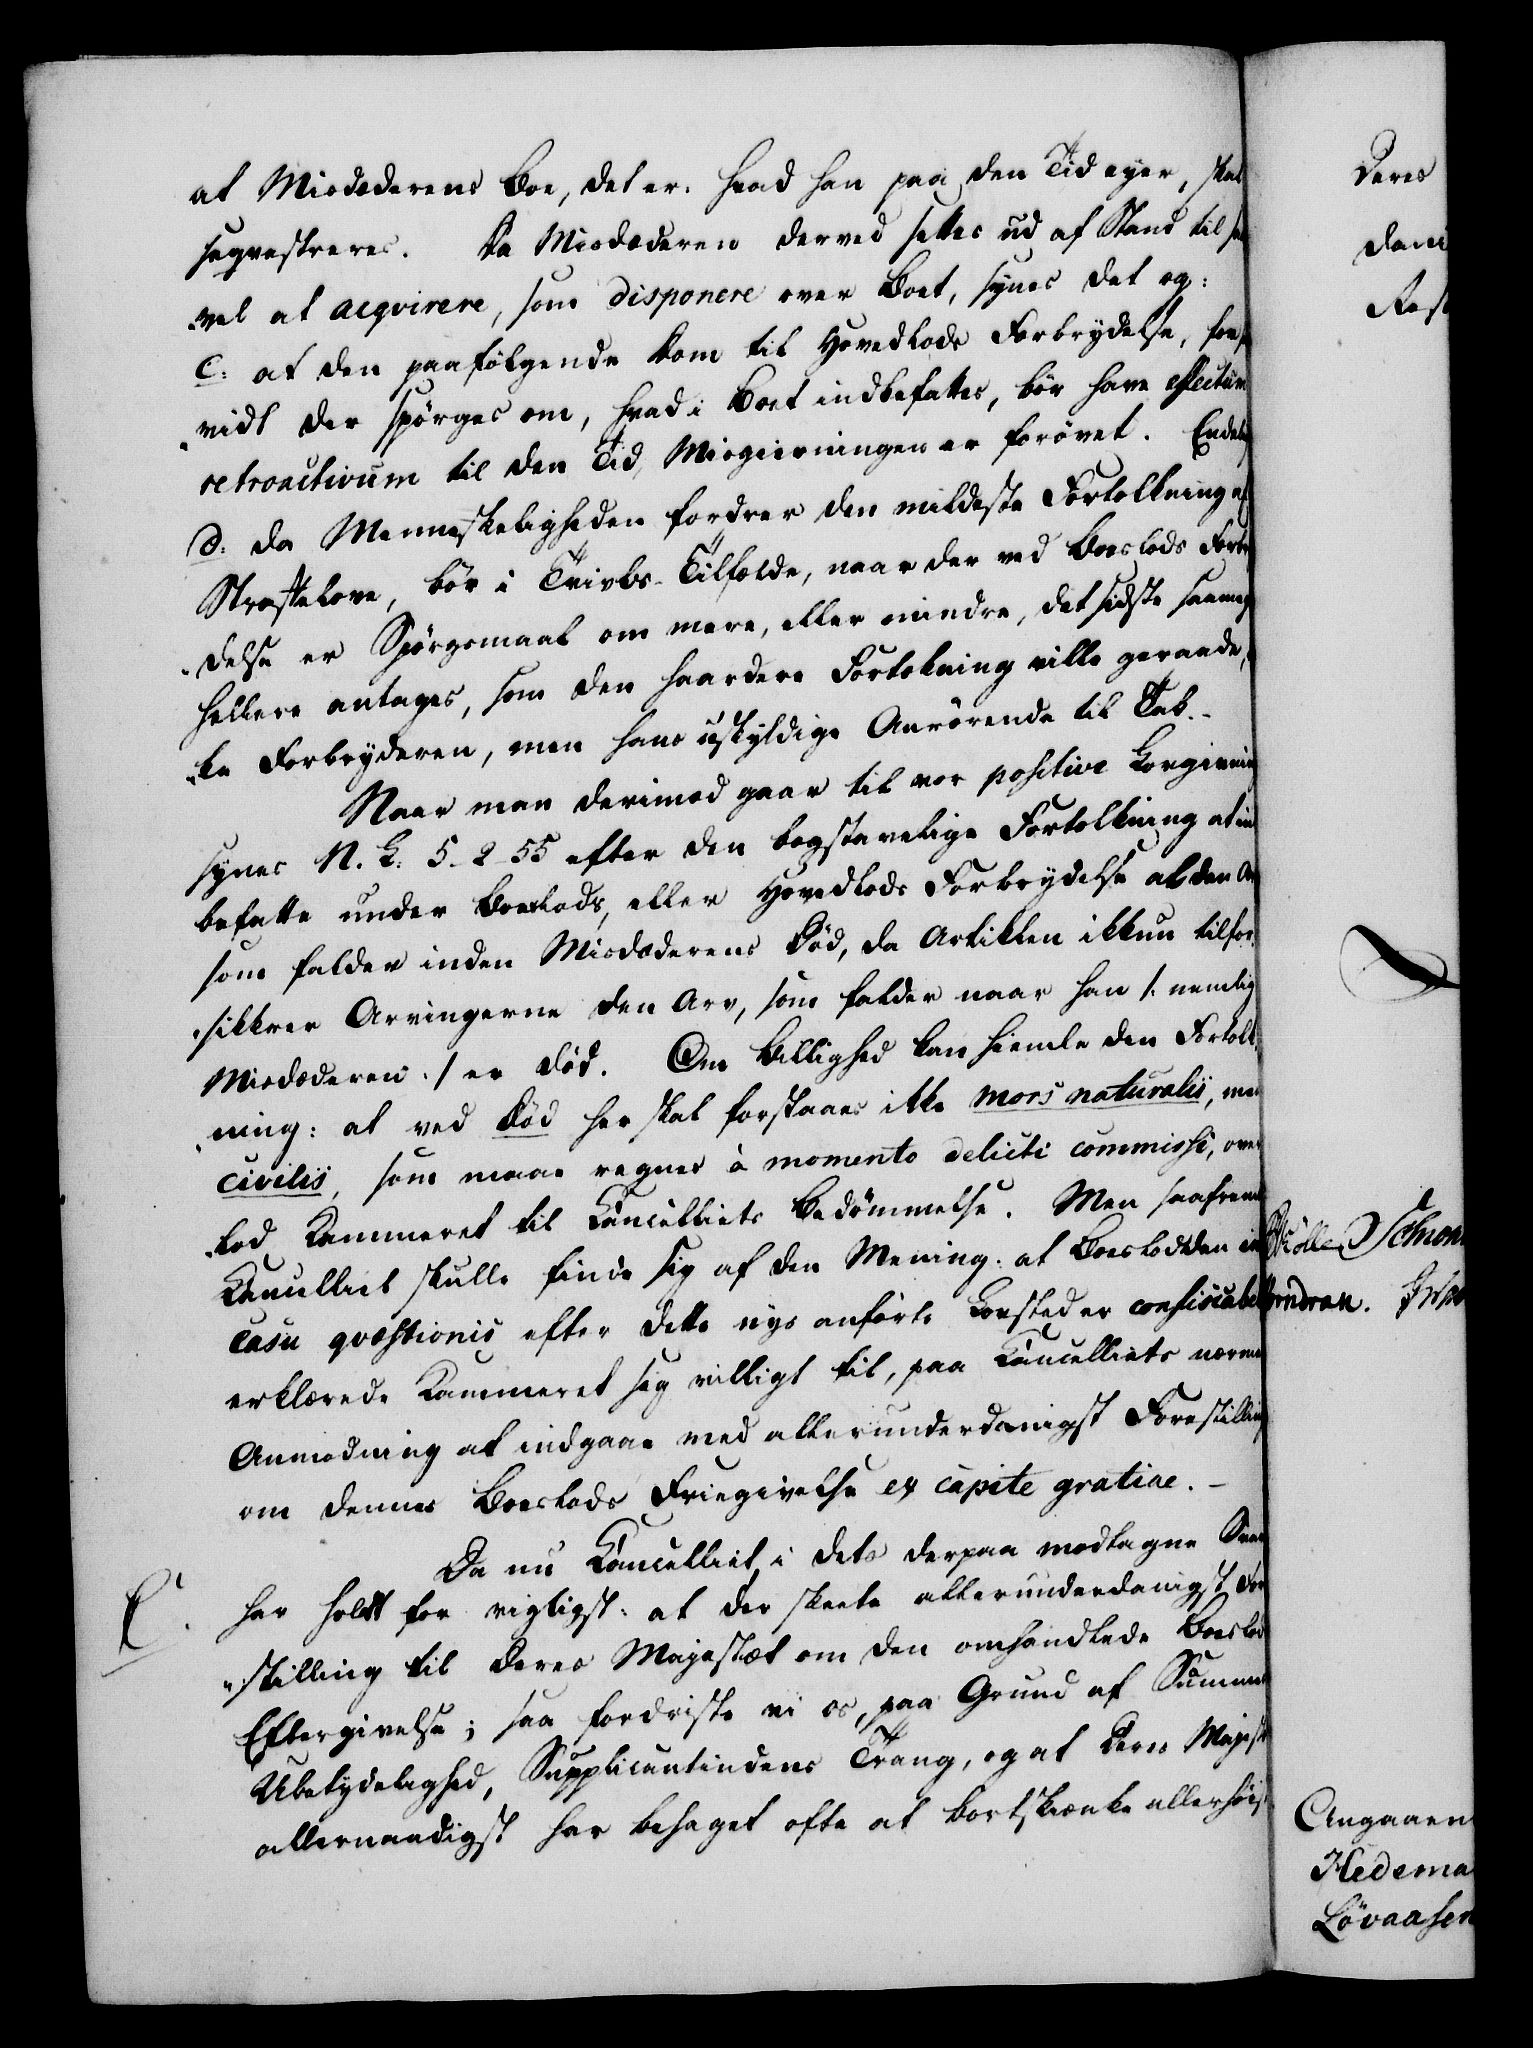 at Misdæderens Boe, det er: hvad han paa den Tid eyer, skal
seqvestreres. Da Misdæderen derved settes ud af Stand til saa
„vel at acqvirere, som disponere over Boet, synes det og:
c: at den paafølgende Dom til Hovedlods Forbrydelse, forsaa
„vidt der spørges om, hvad i Boet indbefattes, bør have effectum
retroactivum til den Tid, Misgierningen er forøvet. Endelig
d: da Menneskeligheden fordrer den mildeste Fortolkning af
Straffelove, bør i Tvivls-Tilfælde, naar der ved Boeslods Forbry
„delse er Spørgsmaal om mere, eller mindre, det sidste saameget
hellere antages, som den haardere Fortolkning ville geraade,
„ke Forbryderen, men hans uskyldige Anrørende til Tab.-
Naar man derimod gaar til vor positive Lovgivning
synes N. L: 5-2-55 efter den bogstavelige Fortolkning at ind
befatte under Boeslods, eller Hovedlods Forbrydelse al den Arv
som falder inden Misdæderens Død, da Artiklen ikkun tilfor
„sikkrer Arvingerne den Arv, som falder naar han /: nemlig
Misdæderen :/ er død. Om Billighed kan hiemle den Fortolk
„ning: at ved Død her skal forstaaes ikke mors naturalis, men
civilis, som maae regnes à momento delicti commissi, over
„lod Kammeret til Cancelliets Bedømmelse. Men saafremt
Cancelliet skulle finde sig af den Mening: at Boeslodden in
casu qvæstionis efter dette nys anførte Lovsted er confiscabel
erklærede Kammeret sig villigt til, paa Cancelliets nærmere
Anmodning at indgaae med allerunderdanigst Forestilling
om dennes Boeslods Friegivelse ex capite gratiae. -
Da nu Cancelliet i dets derpaa modtagne Svar
har holdt for rigtigst: at der skeete allerunderdanigst Fore
„stilling til Deres Majestæt om den omhandlede Boeslods
Eftergivelse; saa fordriste vi os, paa Grund af Summens
Ubetydelighed, Supplicantindens Trang, og at Deres Majestæt
allernaadigst har behaget ofte at bortskienke allerhøist
Deres
dani
Res
Møller Schon
Angaaen
Hedema
Lövaasen